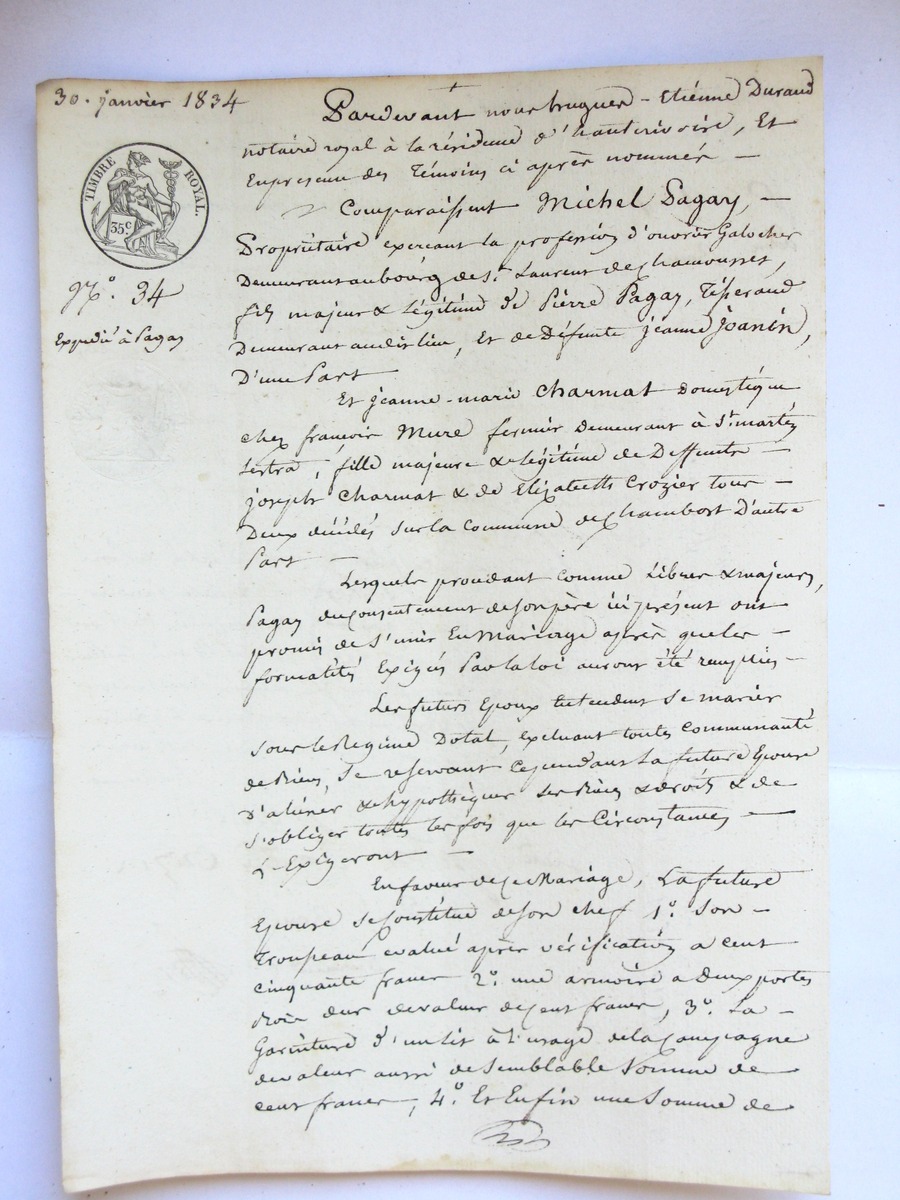 30. janvier 1834
TIMBRE ROYAL.
35c.
N.o 34
Expédié à Pagay
Pardevant nous hugues - Etiénne Durand
notaire royal à la résidence d'hauterivoire, Et
Enpresence des Témoins ci après nommés -
Comparaissent Michel Pagay, -
Propriétaire exercant la profession d'ouvrier Galocher
Demeurant aubourg de St. Laurent de Chamousset,
fils majeur & Légitime de Pierre Pagay, Tisserand
Demeurant audit lieu, Et de Défunte jeanne joanin,
D'une Part
Et jeanne-marie Charmat Domestique
chez francois Mure fermier Demeurant à St. martin
Lestra, fille majeure & Légitime de Deffunts -
joseph Charmat & de Elizabeth Crozier tous -
Deux décédés sur la Commune de Chambost D'autre
Part -
Lesquels procédant comme Libres & majeurs,
Pagay du consentement de son père ici présent ont
promis de S'unir En Mariage après que les -
formalités Exigées Par la loi auront été remplies -
Les futurs Epoux Entendent Se marier
sous le Régime Dotal, excluant toutes Communauté
de Biens, Se reservant Cependant La future Epouse
D'aliéner & hypothéquer Ses Biens & droits & de
S'obliger toutes les fois que les Circonstances -
L'Exigeront -
En faveur de Ce Mariage, La future
Epouse Se Constitue de Son chef 1o. Son -
Trousseau évalué après vérification a cent
cinquante francs 2o. une armoire a deux portes
Bois dur de valeur de Cent francs, 3o. La -
Garniture d'un lit à L'usage de la Campagne
de valeur aussi de Semblable Somme de
cent francs, 4o. Et Enfin une Somme de